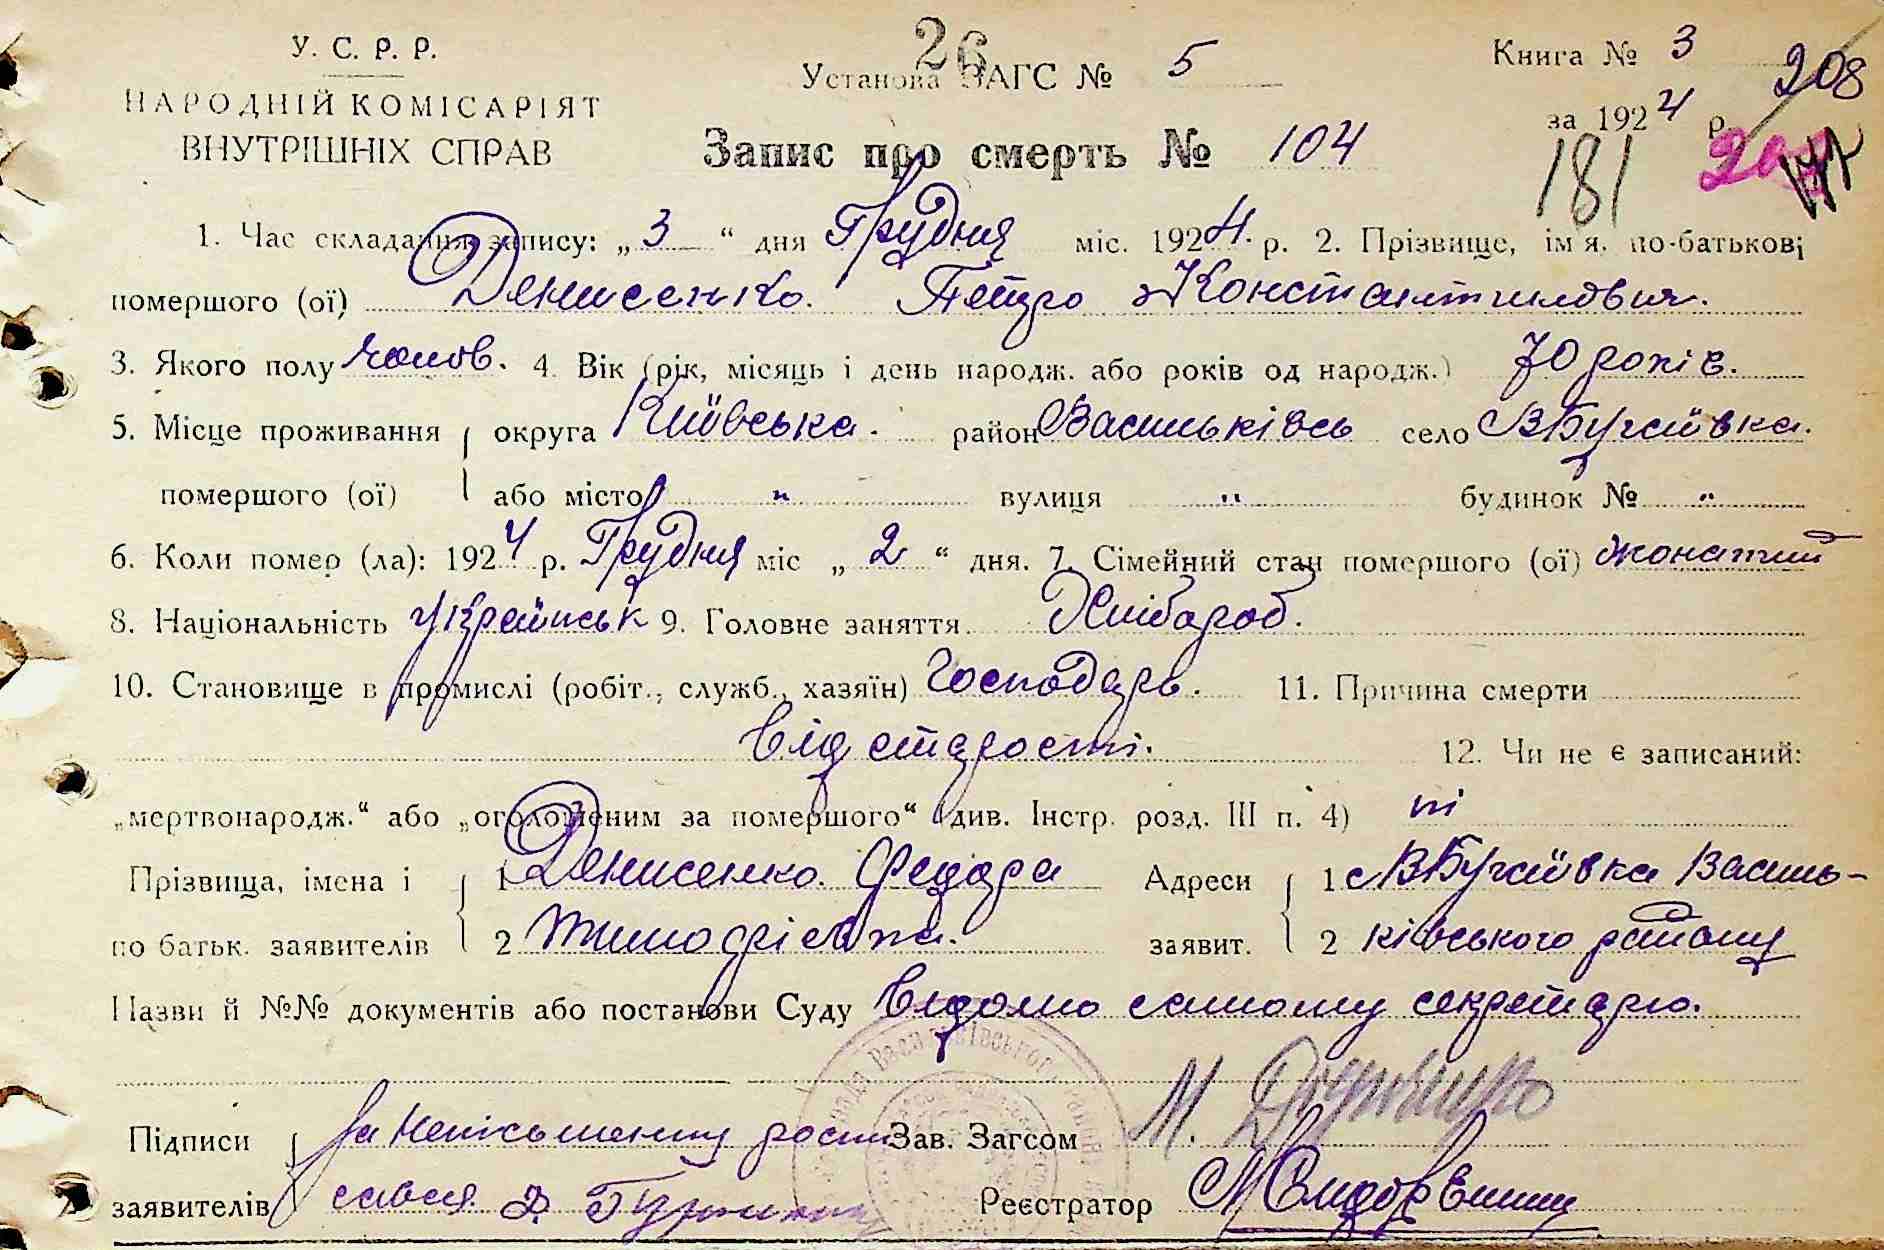 У. С. Р. Р.
НАРОДНІЙ КОМІСАРІЯТ
ВНУТРІШНІХ СПРАВ
26
Установа ЗАГС № 5
Запис про смерть № 104
Книга № 3
за 1924 р.
208
181
1. Час складання запису: „3“ дня Грудня міс. 1924. р. 2. Прізвище, імя, по-батькові
помершого (ої) Денисенко. Петро Константинович.
3. Якого полу чолов. 4. Вік (рік, місяць і день народж. або років од народж.) 70 років.
5. Місце проживання округа Київська. район Васильківсь село ВБугаївка.
помершого (ої) або місто " вулиця " будинок № "
6. Коли помер (ла): 1924 р. Грудня міс „2“ дня. 7. Сімейний стан помершого (ої) жонатий
8. Національність українськ 9. Головне заняття. Хлібороб.
10. Становище в промислі (робіт., служб., хазяїн) Господарь. 11. Причина смерти
від старости. 12. Чи не є записаний:
„мертвонародж.“ або „оголошеним за помершого“ (див. Інстр. розд. III п. 4) ні
Прізвища, імена і 1 Денисенко. Федора Адреси 1 с ВБугаївка Василь-
по батьк. заявителів 2 Тимофієвна. заявит. 2 ківського району
Назви й №№ документів або постанови Суду відомо самому секретарю.
Підписи За неписьменну роспи Зав. Загсом М.
заявителів савсь. Реєстратор